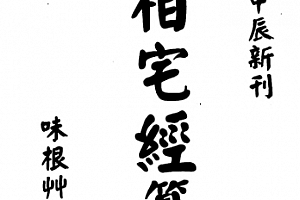 甲辰新刊
相宅經纂
味根艸